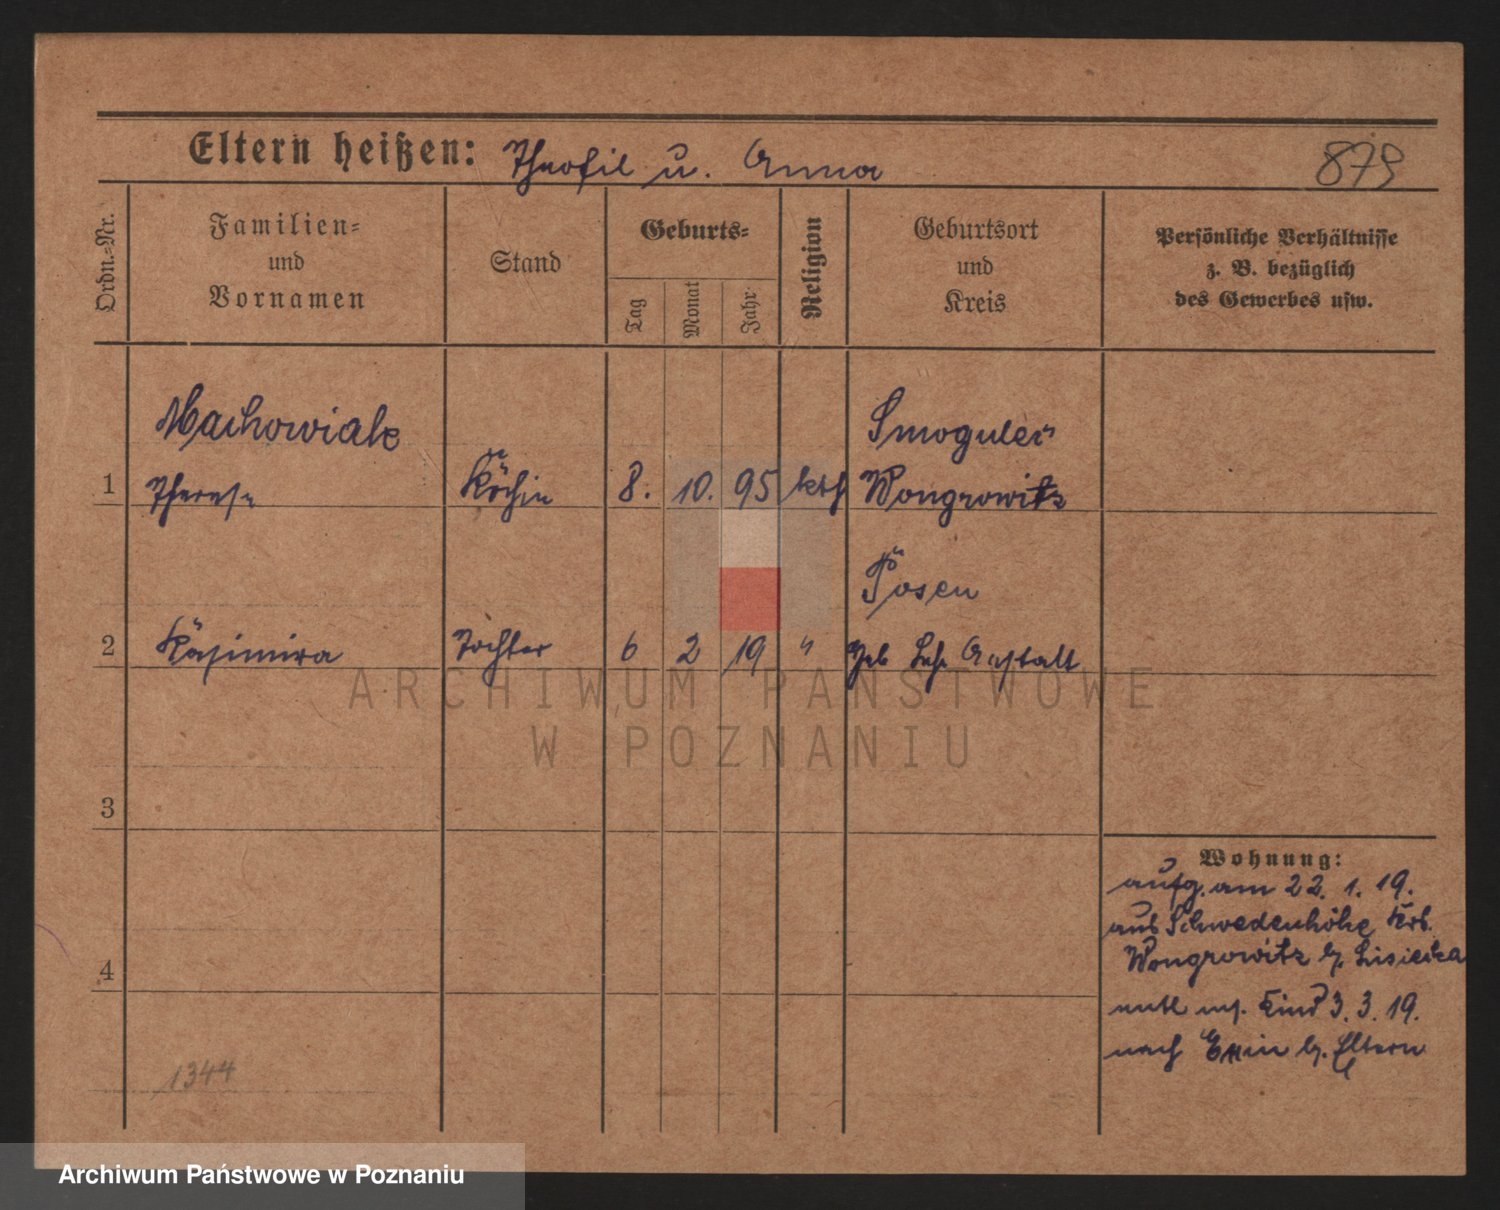 Eltern heißen: Theofil u. Anna
879
Ordn.=Nr.
Familien=
und
Vornamen
Stand
Geburts=
Tag
Monat
Jahr
Religion
Geburtsort
und
Kreis
Persönliche Verhältnisse
z. B. bezüglich
des Gewerbes usw.
Machowiak
Smogulec
1 Therese Köchin 8. 10. 95 kth Wongrowitz
Posen
2 Kasimira Tochter 6 2 19 " Geb Anstalt
ARCHIWUM PAŃSTWOWE
W POZNANIU
3
Wohnung:
aufg. am 22. 1. 19.
aus Schwedenhöhe Krs.
Wongrowitz b. Lisiecka
4
entl. Kind 3. 3. 19.
nach Exin b. Eltern
1344
Archiwum Państwowe w Poznaniu